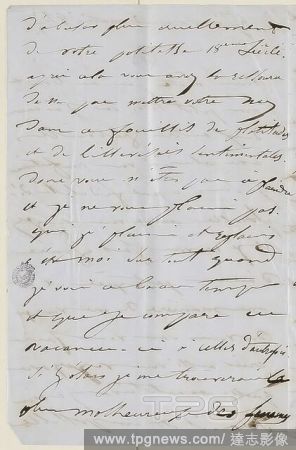 d'abuser plus cruellement
de votre politesse 18eme siècle.
après cela vous avez la ressource
de ne pas mettre votre nez
dans ce fouillis de platitudes
et de littérésies sentimentales.
donc vous n'êtes pas à plaindre
et je ne vous plains pas.
qui je plains et
c'est moi surtout quand
je vois ce beau temps
et que je compare ces
vacances-ci à celles d'autrefois
Si j'étais je me trouverais le
plus malheureux des
TPG
www.tpgnews.com / 達志影像